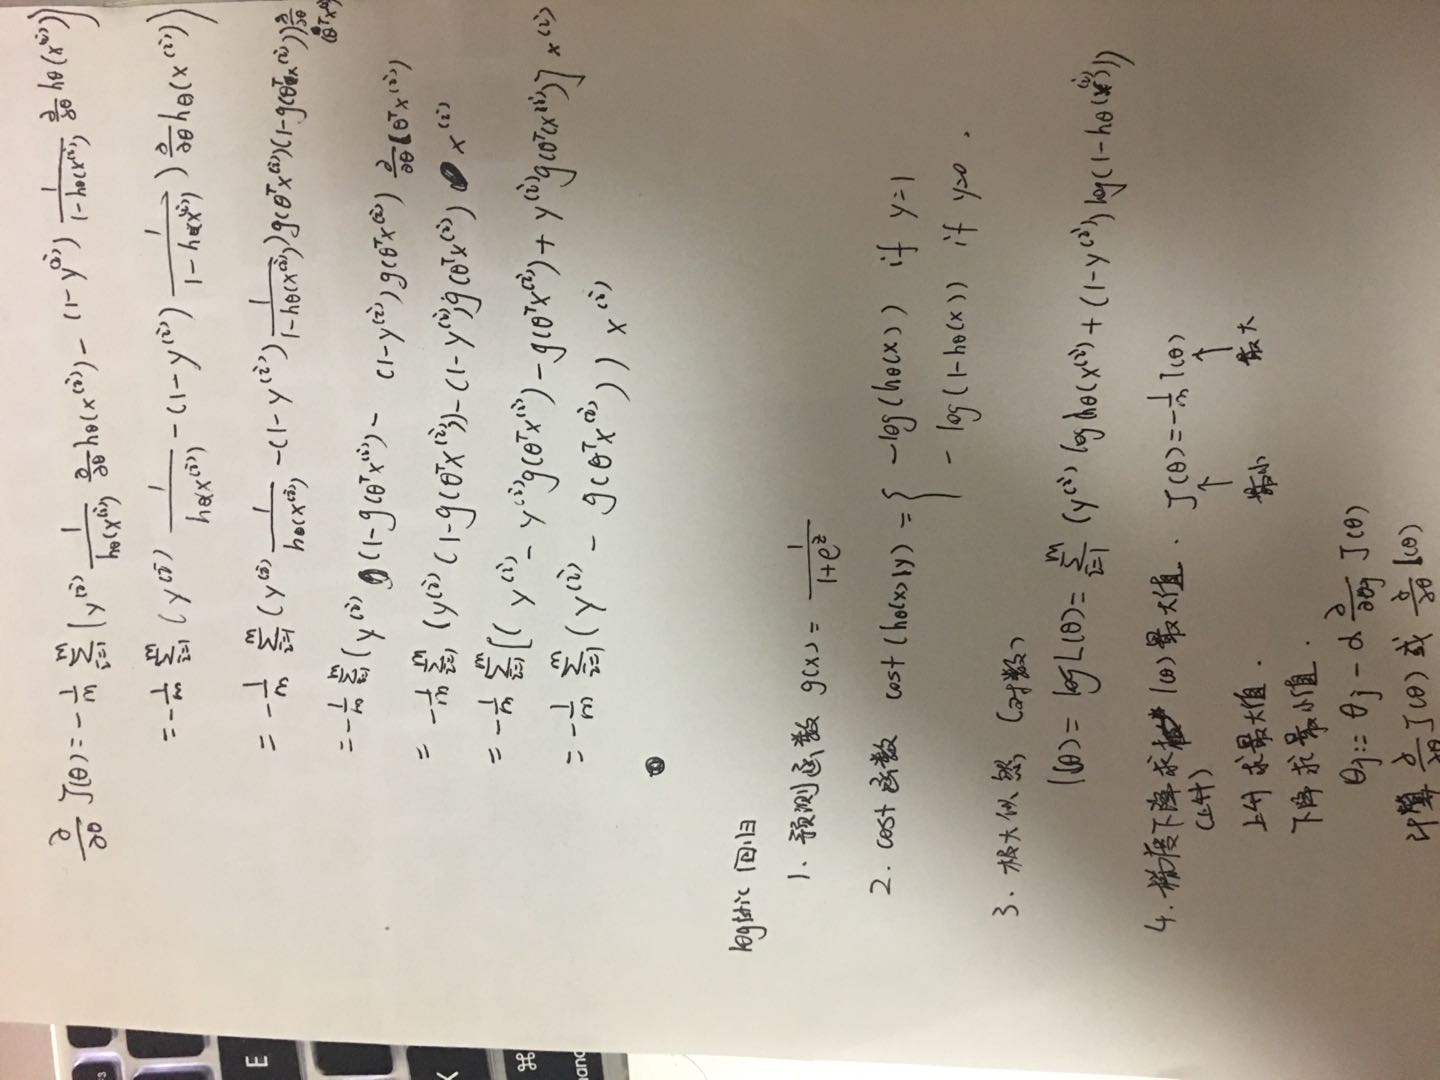 ∂/∂θ J(θ) = -1/m Σ_{i=1}^{m} (y^{(i)} 1/hθ(x^{(i)}) ∂/∂θ hθ(x^{(i)}) - (1-y^{(i)}) 1/(1-hθ(x^{(i)})) ∂/∂θ hθ(x^{(i)}))
= -1/m Σ_{i=1}^{m} (y^{(i)} 1/hθ(x^{(i)}) - (1-y^{(i)}) 1/(1-hθ(x^{(i)})) ) ∂/∂θ hθ(x^{(i)}))
= -1/m Σ_{i=1}^{m} (y^{(i)} 1/hθ(x^{(i)}) - (1-y^{(i)}) 1/(1-hθ(x^{(i)})) ) g(θ^T x^{(i)})(1-g(θ^T x^{(i)})) ∂/∂θ (θ^T x^{(i)})
= -1/m Σ_{i=1}^{m} (y^{(i)} (1-g(θ^T x^{(i)}) - (1-y^{(i)}) g(θ^T x^{(i)}) ∂/∂θ (θ^T x^{(i)})
= -1/m Σ_{i=1}^{m} (y^{(i)} (1-g(θ^T x^{(i)})) - (1-y^{(i)}) g(θ^T x^{(i)}) x^{(i)}
= -1/m Σ_{i=1}^{m} [( y^{(i)} - y^{(i)} g(θ^T x^{(i)}) - g(θ^T x^{(i)}) + y^{(i)} g(θ^T(x^{(i)}) ] x^{(i)}
= -1/m Σ_{i=1}^{m} (y^{(i)} - g(θ^T x^{(i)})) x^{(i)}
logistic 回归
1. 预测函数 g(x) = 1/(1+e^z)
2. cost 函数 cost(hθ(x), y) = { -log(hθ(x)) if y=1
- log(1-hθ(x)) if y=0 .
3. 极大似然 (对数)
l(θ) = log L(θ) = Σ_{i=1}^{m} (y^{(i)} log hθ(x^{(i)} + (1-y^{(i)}) log(1-hθ(x^{(i)}))
4. 梯度下降求 l(θ) 最大值 . J(θ) = -1/m l(θ)
(上升) ↑ ↑
上升求最大值 . 最小 最大
下降求最小值 .
θj := θj - α ∂/∂θj J(θ)
计算 ∂/∂θ J(θ) 或 ∂/∂θ l(θ)
E
X
⌘